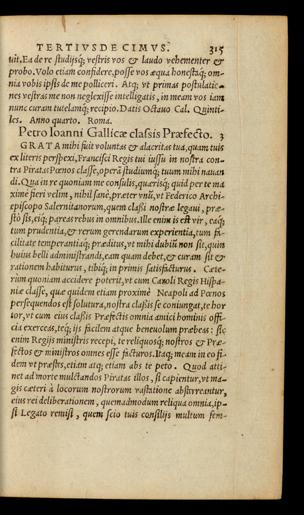 TERTIVS DECIMVS. 315
uit. Ea de re studijsq; vestris vos & laudo vehementer &
probo. Volo etiam confidere, posse vos æqua honestaq; om-
nia vobis ipsis de me polliceri. Atq; vt primas postulatio-
nes vestras me non neglexisse intelligatis, in meam vos iam
nunc curam tutelamq; recipio. Datis Octauo Cal. Quinti-
les. Anno quarto. Roma.
Petro Ioanni Gallicæ classis Præfecto. 3
GRATA mihi fuit voluntas & alacritas tua, quam tuis
ex literis perspexi, Francisci Regis tui iussu in nostra con-
tra Piratas Pœnos classe, operâ studiumq; tuum mihi nauan
di. Qua in re quoniam me consulis, quærisq; quid per te ma
xime fieri velim, nihil sanè, præter vnũ, vt Federico Archi-
episcopo Salernitanorum, quem classi nostræ legaui, præ-
stò sis, eiq; pareas rebus in omnibus. Ille enim is est vir, eaq;
tum prudentia, & rerum gerendarum experientia, tum fa-
cilitate temperantiaq; præditus, vt mihi dubiũ non sit, quin
huius belli administrandi, eam quam debet, & curam sit &
rationem habiturus, tibiq; in primis satisfacturus. Cæte-
rùm quoniam accidere poterit, vt cum Caroli Regis Hispa-
niæ classe, quæ quidem etiam proximè Neapoli ad Pœnos
persequendos est solutura, nostra classis se coniungat, te hor
tor, vt cum eius classis Præfectis omnia amici hominis offi
cia exerceas, teq; ijs facilem atque beneuolum præbeas: sic
enim Regijs ministris recepi, te reliquosq; nostros & Præ-
fectos & ministros omnes esse facturos. Itaq; meam in eo fi-
dem vt præstes, etiam atq; etiam abs te peto. Quod atti-
net ad morte mulctandos Piratas illos, si capientur, vt ma-
gis cæteri à locorum nostrorum vastatione absterreantur,
eius rei deliberationem, quemadmodum reliqua omnia, ip-
si Legato remisi, quem scio tuis consilijs multum fem-